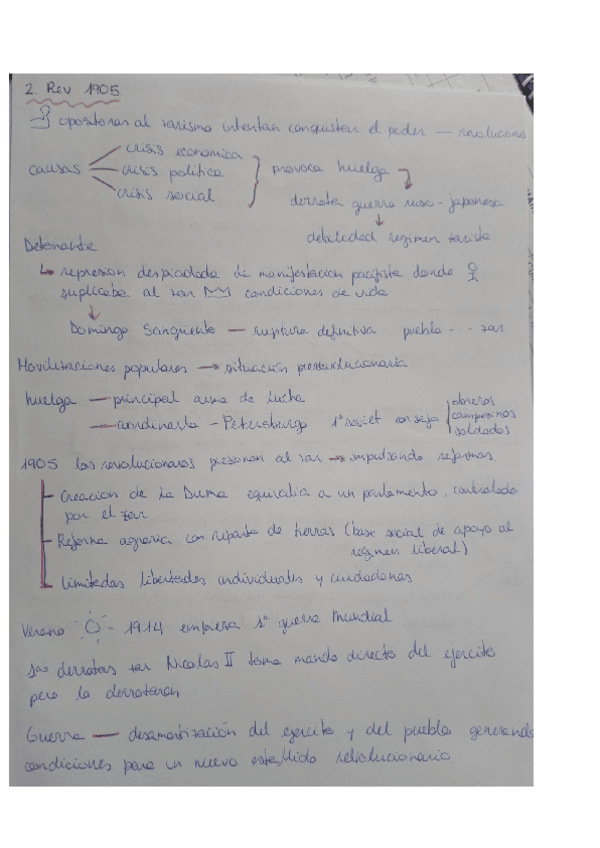 2. Rev 1905
opositoran al zarismo intentan conquistar el poder — revoluciones
causas
crisis economica
crisis politica
crisis social
provoca huelga
derrota guerra ruso-japonesa
debilidad regimen zarista
Detonante
↳ represion despiadada de manifestacion pacifista donde
suplicaba al zar condiciones de vida
Domingo Sangriento — ruptura definitiva pueblo --- zar
Movilizaciones populares → situación prerrevolucionaria
huelga — principal arma de lucha
→ coordinarla - Petersburgo 1º soviet consejo
obreros
campesinos
soldados
1905 los revolucionarios presionan al zar → impulsando reformas.
Creacion de la Duma equivalia a un parlamento, controlado
por el zar
Reforma agraria con reparto de tierras (base social de apoyo al
regimen liberal)
Limitadas libertades individuales y ciudadanas
Verano - 1914 empieza 1ª guerra Mundial
derrotas zar Nicolas II toma mando directo del ejercito
pero lo derrotaran
Guerra — del ejercito y del pueblo generando
condiciones para un nuevo estallido revolucionario.